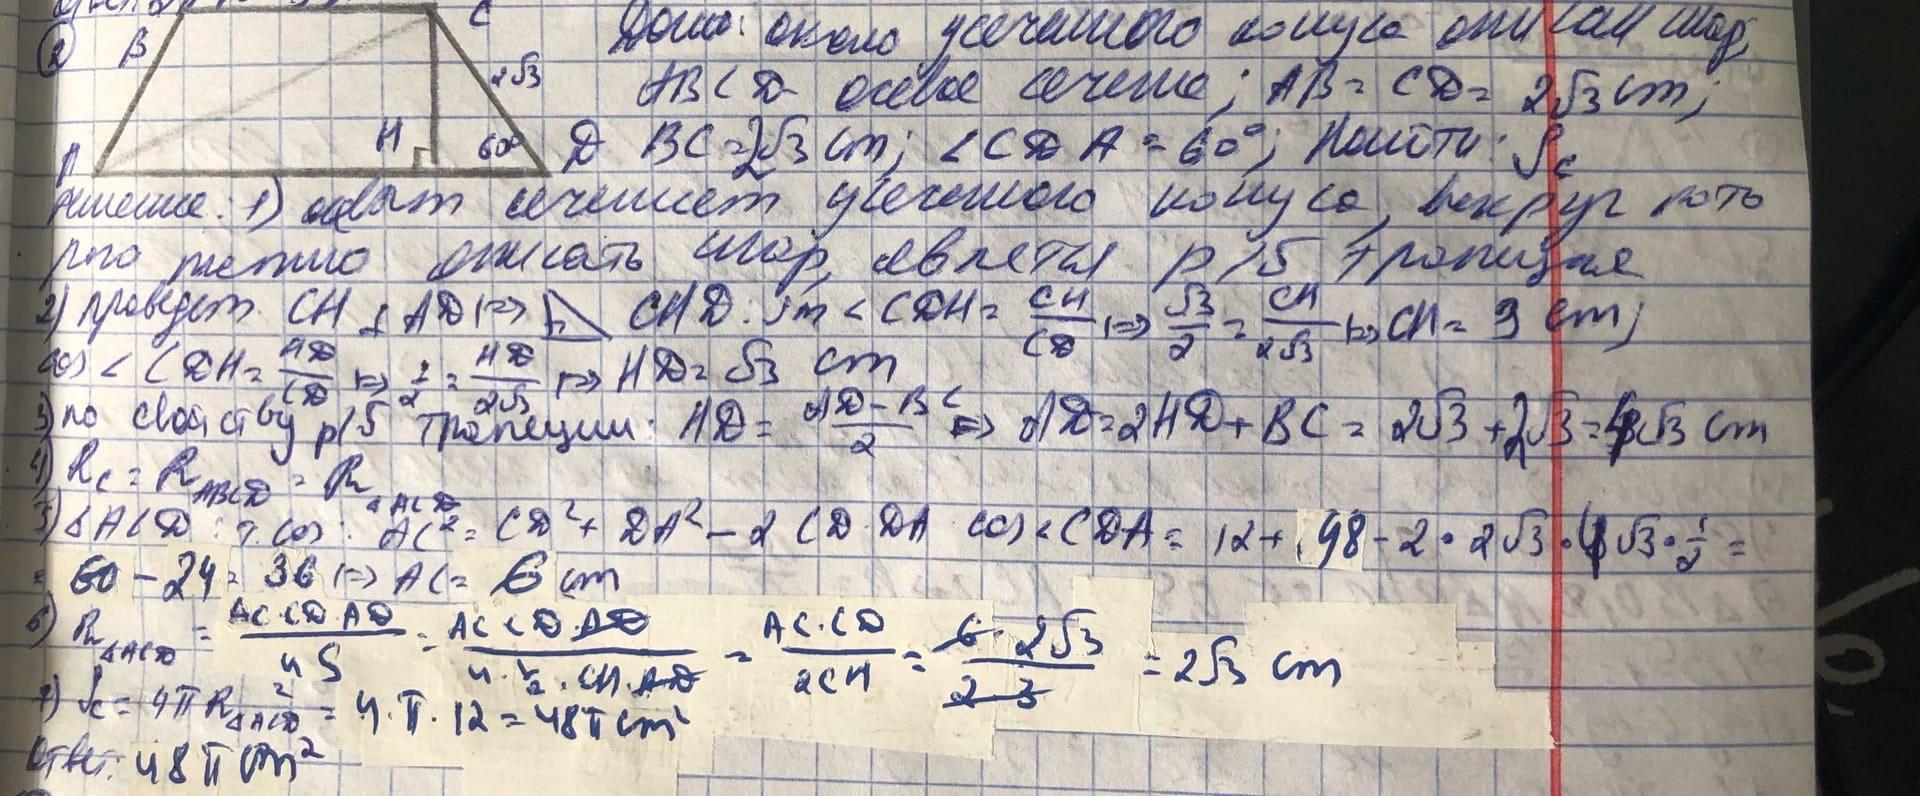 ② B C Дано: около усечённого конуса описан шар,
2√3 ABCD - осевое сечение; AB = CD = 2√3 cm;
A H 60° D BC = 2√3 cm; ∠CDA = 60°; Найти: Sc
Решение: 1) осевым сечением усечённого конуса, вокруг кото
рого можно описать шар, является р/б трапеция
2) проведём CH ⊥ AD |=> CHD: sin ∠CDH = CH/CD |=> √3/2 = CH/2√3 |=> CH = 3 cm;
cos ∠CDH = HD/CD |=> 1/2 = HD/2√3 |=> HD = √3 cm
3) по свойству р/б трапеции: HD = (AD - BC)/2 => AD = 2HD + BC = 2√3 + 2√3 = 4√3 cm
4) Rc = R ABCD = R △ACD
5) △ACD: т. cos: AC² = CD² + DA² - 2 CD·DA·cos ∠CDA = 12 + 48 - 2·2√3·4√3·1/2 =
= 60 - 24 = 36 |=> AC = 6 cm
6) R △ACD = AC·CD·AD/4S = AC·CD·AD/4·1/2·CH·AD = AC·CD/2CH = 6·2√3/2·3 = 2√3 cm
7) Sc = 4πR²△ACD = 4·π·12 = 48π cm²
Ответ: 48π cm²